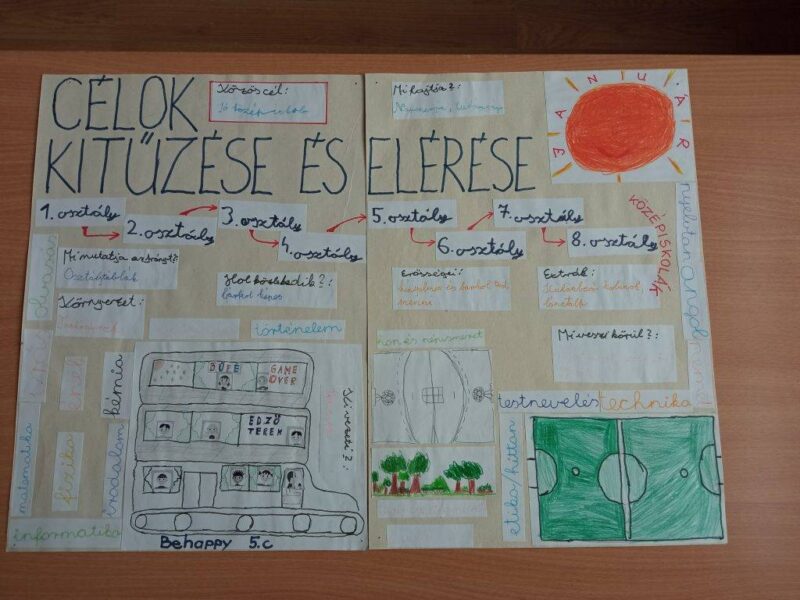 CÉLOK
KITŰZÉSE ÉS ELÉRÉSE
Közös cél:
Jó középiskola
Mi hajtja?:
JANUÁR
1. osztály
2. osztály
3. osztály
4. osztály
5. osztály
6. osztály
7. osztály
8. osztály
KÖZÉPISKOLÁK
Mi mutatja az irányt?:
Osztálytáblák
Környezet:
Hol közlekedik?:
bárhol képes
Erősségei:
Extrák:
Mi veszi körül?:
Ki vezeti?:
olvasás
ének
kémia
történelem
hon és népismeret
nyelvtan
angol
testnevelés
technika
matematika
fizika
irodalom
informatika
etika/hittan
BÜFÉ
GAME
OVER
EDZŐ
TEREM
Behappy 5.c